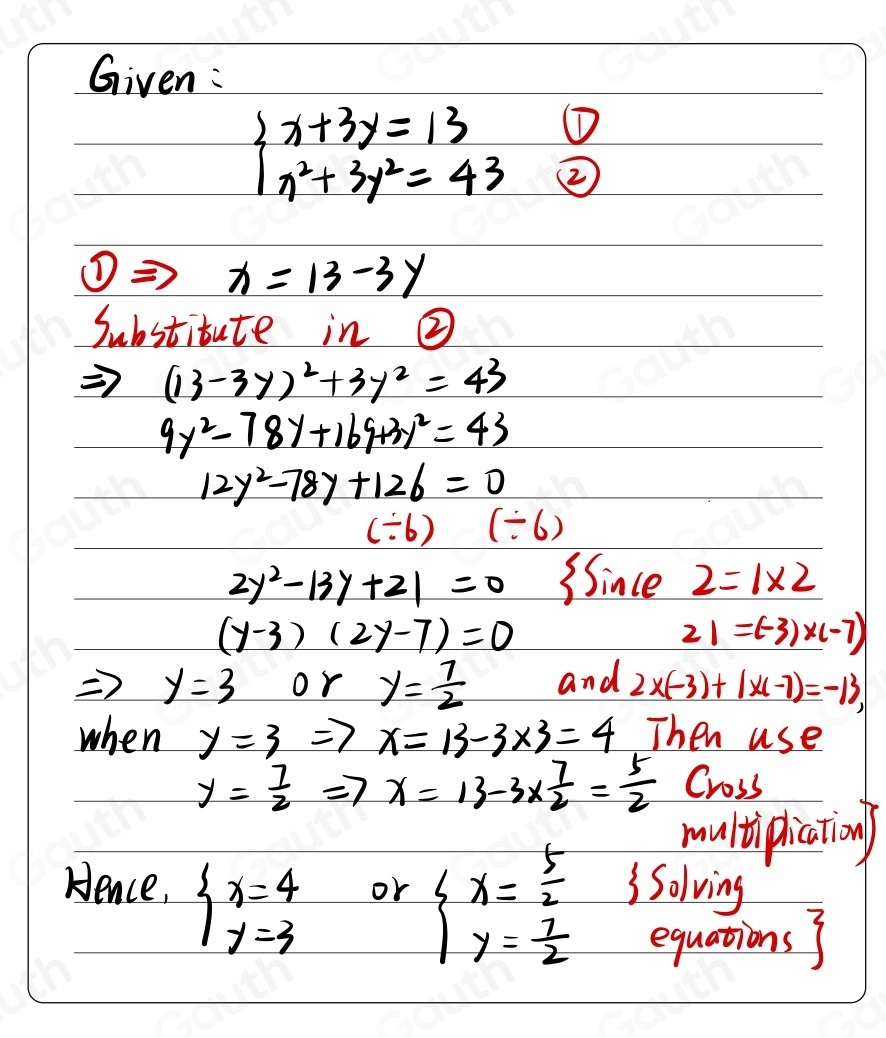 Given:
{ x+3y=13 ①
x²+3y²=43 ②
① ⇒ x=13-3y
Substitute in ②
⇒ (13-3y)²+3y²=43
9y²-78y+169+3y²=43
12y²-78y+126=0
(÷6) (÷6)
2y²-13y+21=0 {Since 2=1×2
(y-3)(2y-7)=0 21=(-3)×(-7)
⇒ y=3 or y=7/2 and 2×(-3)+1×(-7)=-13,
when y=3 ⇒ x=13-3×3=4 Then use
y=7/2 ⇒ x=13-3×7/2=5/2 Cross
multiplication}
Hence, { x=4 or { x=5/2 {Solving
y=3 y=7/2 equations}
Gauth